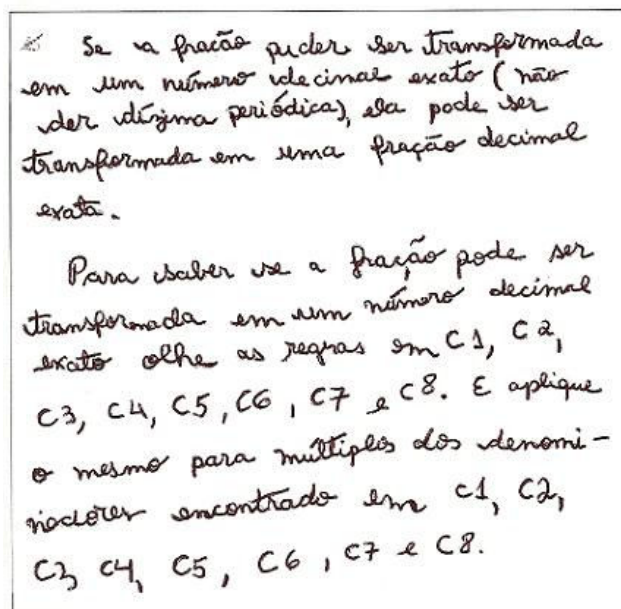 Se a fração puder ser transformada
em um número decimal exato (não
der dízima periódica), ela pode ser
transformada em uma fração decimal
exata.
Para saber se a fração pode ser
transformada em um número decimal
exato olhe as regras em C1, C2,
C3, C4, C5, C6, C7 e C8. E aplique
o mesmo para múltiplos dos denomi-
nadores encontrado em C1, C2,
C3, C4, C5, C6, C7 e C8.